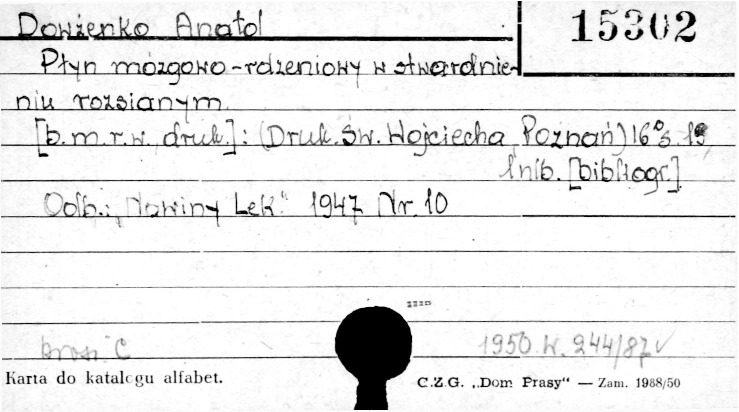 Dowżenko Anatol
15302
Płyn mózgowo-rdzeniowy w stwardnie-
niu rozsianym.
[b.m.r.w. druk.]: (Druk. Św. Wojciecha, Poznań) 16° s. 19
1 nlb. [bibliogr.]
Odb.: „Nowiny Lek." 1947 Nr. 10
1950. W. 244/87 ✓
Karta do katalogu alfabet.
C.Z.G. „Dom Prasy" — Zam. 1988/50